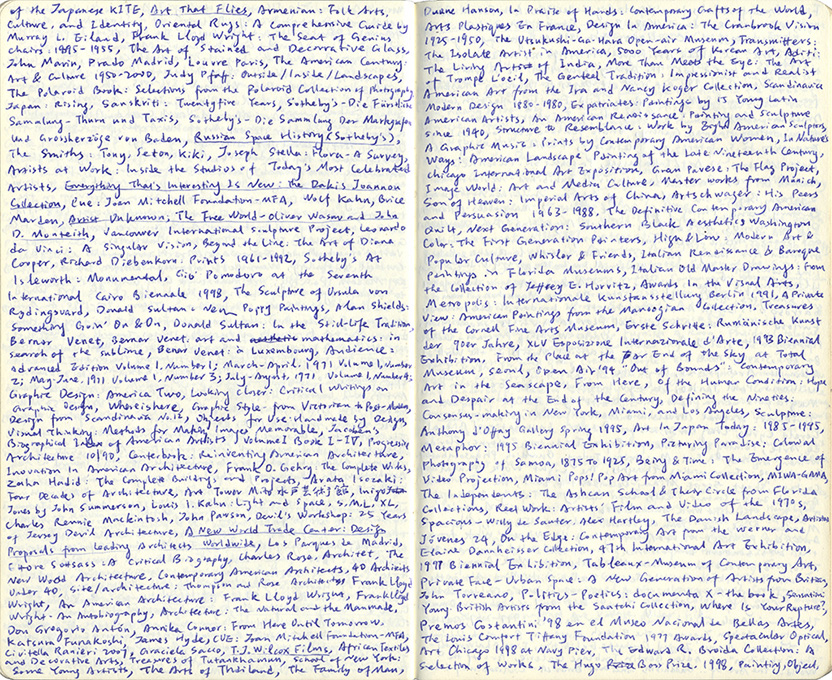 of the Japanese KITE, Art That Flies, Armenian: Folk Arts,
Culture, and Identity, Oriental Rugs: A Comprehensive Guide by
Murray L. Eiland, Frank Lloyd Wright: The Seat of Genius
Chairs: 1895-1955, The Art of Stained and Decorative Glass,
John Marin, Prado Madrid, Louvre Paris, The American Century:
Art & Culture 1950-2000, Judy Pfaff: Outside/Inside/Landscapes,
The Polaroid Book: Selections from the Polaroid Collection of Photography,
Japan: Rising, Sanskriti: Twentyfive Years, Sotheby's - Die Fürstliche
Samalung - Thurn und Taxis, Sotheby's - Die Samlung Der Markgrafen
und Grossherzöge von Baden, Russian Space History (Sotheby's),
The Smiths: Tony, Seton, Kiki, Joseph Stella: Flora - A Survey,
Artists at Work: Inside the Studios of Today's Most Celebrated
Artists, Everything That's Interesting Is New: the Dakis Joannou
Collection, Cue: Joan Mitchell Foundation - MFA, Wolf Kahn, Brice
Marden, Artist Unknown, The Free World - Oliver Wasow and John
D. Monteith, Vancouver International Sculpture Project, Leonardo
da Vinci: A Singular Vision, Beyond the Line: The Art of Diana
Cooper, Richard Diebenkorn: Prints 1961-1992, Sotheby's At
Isleworth: Monumental, Gió Pomodoro at the Seventh
International Cairo Biennale 1998, The Sculpture of Ursula von
Rydingsvard, Donald Sultan: New Poppy Paintings, Alan Shields:
Something Goin' On & On, Donald Sultan: In the Still-Life Tradition,
Bernar Venet, Bernar Venet: art and mathematics: in
search of the sublime, Benar Venet: a Luxembourg, Audience:
Advanced Edition Volume 1, Number 1; March-April, 1971 Volume 1, Number
2; May-June, 1971 Volume 1, Number 3; July-August, 1971 Volume 1, Number 4;
Graphic Design: America Two, Looking Closer: Critical Writings on
Graphic Design, Whereishere, Graphic Style: from Victorian to Post-Modern,
Design from Scandinavia No. 13, Objects for Use: Handmade by Design,
Visual Thinking: Methods for Making Images Memorable, Jacobsen's
Biographical Index of American Artists Volume I Book I-IV, Progressive
Architecture 10/90, Centerbook: Reinventing American Architecture,
Inovation In American Architecture, Frank O. Gehry: The Complete Works,
Zaha Hadid: The Complete Buildings and Projects, Arata Isozaki:
Four Decades of Architecture, Art Tower Mito, Inigo
Jones by John Summerson, Louis I. Kahn: Light and Space, S,M,L,XL,
Charles Rennie Mackintosh, John Pawson, Devil's Workshop: 25 Years
of Jersey Devil Architecture, A New World Trade Center: Design
Proposals from Leading Architects Worldwide, Los Parques de Madrid,
Ettore Sottsass: A Critical Biography, Charles Rose, Architect, The
New Wood Architecture, Contemporary American Architects, 40 Architects
Under 40, Site/architecture, Thompson and Rose Architects, Frank Lloyd
Wright, An American Architecture: Frank Lloyd Wright, Frank Lloyd
Wright - An Autobiography, Architecture: The Natural and the Manmade,
Don Gregorio Antón, Annika Connor: From Here Until Tomorrow,
Katsura Funakoshi, James Hyde, CUE: Joan Mitchell Foundation - MFA,
Civitella Ranieri 2007, Graciela Sacco, T.J. Wilcox Films, African Textiles
and Decorative Arts, Treasures of Tutankhamun, School of New York:
Some Young Artists, The Arts of Thailand, The Family of Man,
Duane Hanson, In Praise of Hands: Contemporary Crafts of the World,
Arts Plastiques En France, Design In America: The Cranbrook Vision
1925-1950, The Utsukushi-Ga-Hara Open-air Museum, Transmitters:
The Isolate Artist in America, 5000 Years of Korean Art, Aditi:
The Living Arts of India, More Than Meets the Eye: The Art
of Trompe L'oeil, The Genteel Tradition: Impressionist and Realist
American Art from the Ira and Nancy Koger Collection, Scandinavian
Modern Design 1880-1980, Expatriates: Paintings by 15 Young Latin
American Artists, An American Renaissance: Painting and Sculpture
since 1940, Structure to Resemblance: Work by Eight American Sculptors,
A Graphic Music: Prints by Contemporary American Women, In Natures
Ways: American Landscape Painting of the Late Nineteenth Century,
Chicago International Art Exposition, Gran Pavese: The Flag Project,
Image World: Art and Media Culture, Master works from Munich,
Son of Heaven: Imperial Arts of China, Artschwager: His Peers
and Persuasion 1963-1988, The Definitive Contemporary American
Quilt, Next Generation: Southern Black Aesthetics Washington
Color: The First Generation Painters, High & Low: Modern Art &
Popular Culture, Whisler & Friends, Italian Renaissance & Baroque
Paintings in Florida Museums, Italian Old Master Drawings: from
the Collection of Jeffrey E. Horvitz, Awards In the Visual Arts,
Metropolis: Internationale Kunstausstellung Berlin 1991, A Private
View: American Paintings from the Manoogian Collection, Treasures
of the Cornell Fine Arts Museum, Erste Schritte: Rumänische Kunst
der 90er Jahre, XLV Esposizione Internazionale d'Arte, 1993 Biennial
Exhibition, From the Place at the Far End of the Sky at Total
Museum, Seoul, Open Air '94 "Out of Bounds": Contemporary
Art in the Seascape, From Here, Of the Human Condition: Hope
and Despair at the End of the Century, Defining the Nineties:
Consensus-making in New York, Miami, and Los Angeles, Sculpture:
Anthony d'Offay Gallery Spring 1995, Art In Japan Today: 1985-1995,
Metaphor: 1995 Biennial Exhibition, Picturing Paradise: Colonial
Photography of Samoa, 1875 to 1925, Being & Time: The Emergence of
Video Projection, Miami Pops! Pop Art from Miami Collection, MIWA-GAMA,
The Independents: The Ashcan School & Their Circle from Florida
Collections, Reel Work: Artists' Film and Video of the 1970s,
Spacious - Willy de Sauter, Alex Hartley, The Danish Landscape, Artistas
Jóvenes 24, On the Edge: Contemporary Art from the Werner and
Elaine Dannheisser Collection, 47th International Art Exhibition,
1997 Biennial Exhibition, Tableaux - Museum of Contemporary Art,
Private Face - Urban Space: A New Generation of Artists from Britain,
John Torreano, Politics-Poetics: documenta X - the book, Sensation:
Young British Artists from the Saatchi Collection, Where Is Your Rupture?,
Premos Costantini '98 en el Museo Nacional de Bellas Artes,
The Louis Comfort Tiffany Foundation 1997 Awards, Spectacular Optical,
Art Chicago 1998 at Navy Pier, The Edward R. Broida Collection: A
Selection of Works, The Hugo Boss Prize 1998, Painting: Object,